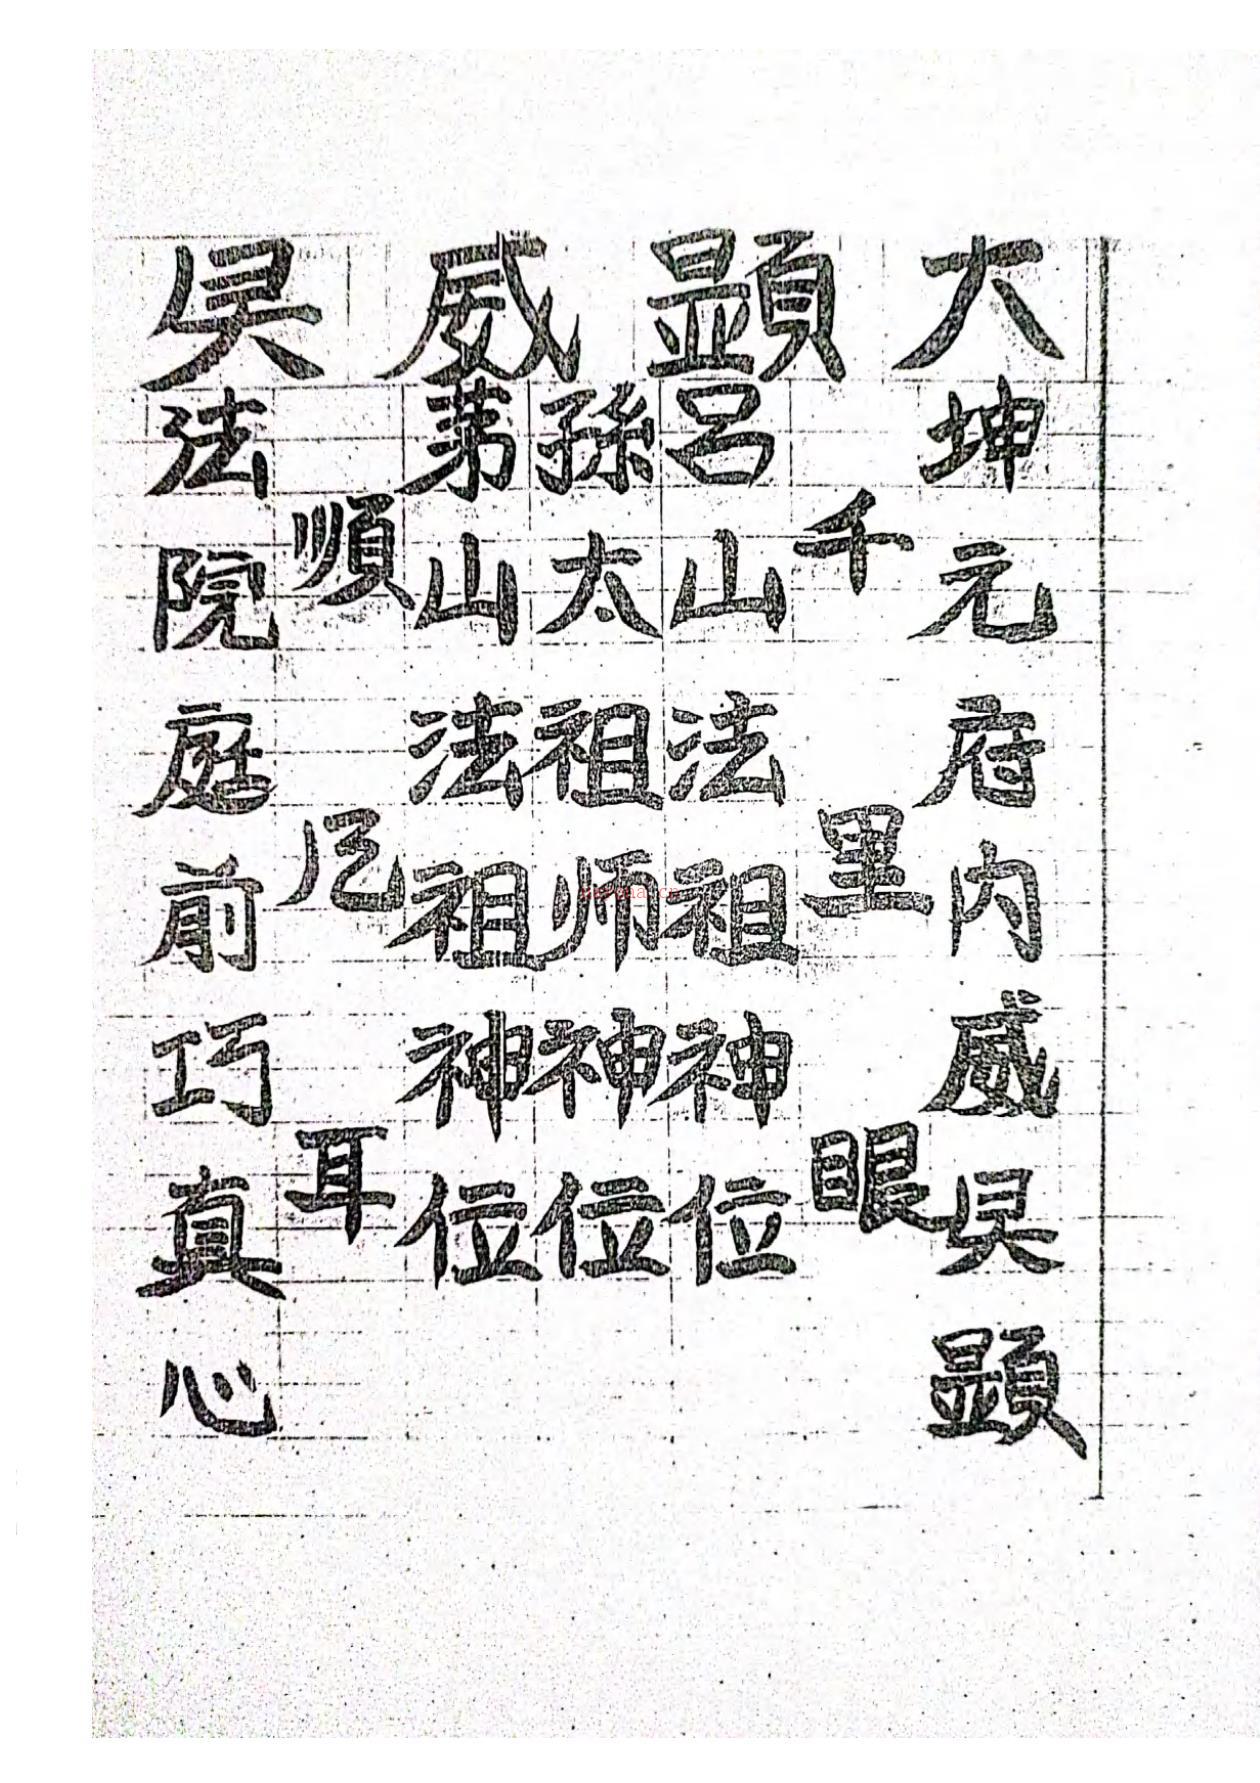 大顕威灵
坤元府内威灵顕
千里眼
呂山法祖神位
孫太祖师神位
苐山法祖神位
順凨耳
法院庭前巧真心